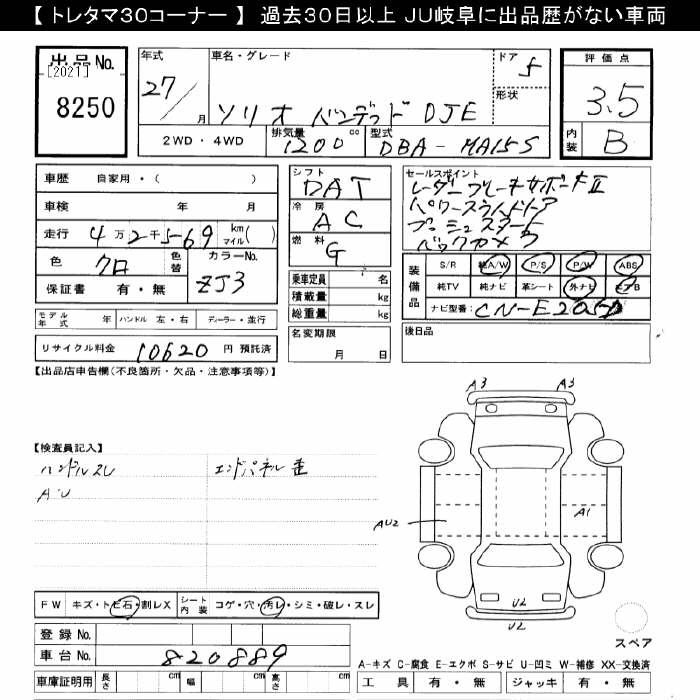 【 トレタマ30コーナー 】 過去30日以上 JU岐阜に出品歴がない車両
出品No.
[2021]
8250
年式
27/
月
車名・グレード
ソリオ バンデット DJE
ドア
5
形状
評価点
3.5
内装
B
2WD・4WD
排気量
1200
cc
型式
DBA-MA15S
車歴 自家用・( )
車検 年 月
走行 4万2千569 km マイル( )
色 クロ 色替
カラーNo.
ZJ3
保証書 有・無
モデル年式 年 ハンドル 左・右 ディーラー・並行
リサイクル料金 10620 円 預託済
シフト
DAT
冷房
AC
燃料
G
乗車定員 名
積載量 kg
総重量 kg
名変期限
月 日
セールスポイント
レーダーブレーキサポートII
パワースライドドア
プッシュスタート
バックカメラ
装備品
S/R 純A/W P/S P/W ABS
純TV 純ナビ 革シート 外ナビ エアB
ナビ型番
後日品
【出品店申告欄(不良箇所・欠品・注意事項等)】
【検査員記入】
ハンドルスレ
エンドパネル歪
AU
A3
A3
AU2
A1
U2
U2
スペア
FW キズ・トビ石・割レX
シート内装 コゲ・穴・汚レ・シミ・破レ・スレ
登録No.
車台No. 820889
車庫証明用 長さ cm 幅 cm 高さ cm
A-キズ C-腐食 E-エクボ S-サビ U-凹ミ W-補修 XX-交換済
工具 有・無 ジャッキ 有・無